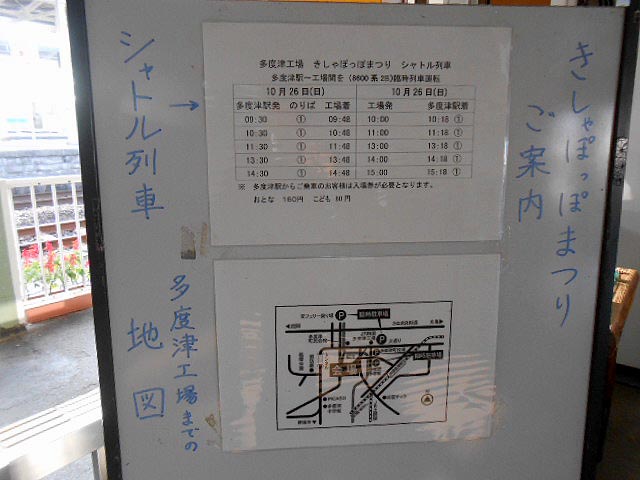 きしゃぽっぽまつり
ご案内
シャトル列車 →
多度津工場 きしゃぽっぽまつり シャトル列車
多度津駅〜工場間を(8600系2B)臨時列車運転
10月26日(日) 10月26日(日)
多度津駅発 のりば 工場着 工場発 多度津駅着
09:30 ① 09:48 10:00 10:18 ①
10:30 ① 10:48 11:00 11:18 ①
11:30 ① 11:48 12:00 12:18 ①
13:30 ① 13:48 14:00 14:18 ①
14:30 ① 14:48 15:00 15:18 ①
※ 多度津駅からご乗車のお客様は入場券が必要となります。
おとな 160円 こども 80円
多度津工場までの
地図
P 臨時駐車場
P
P
臨時駐車場